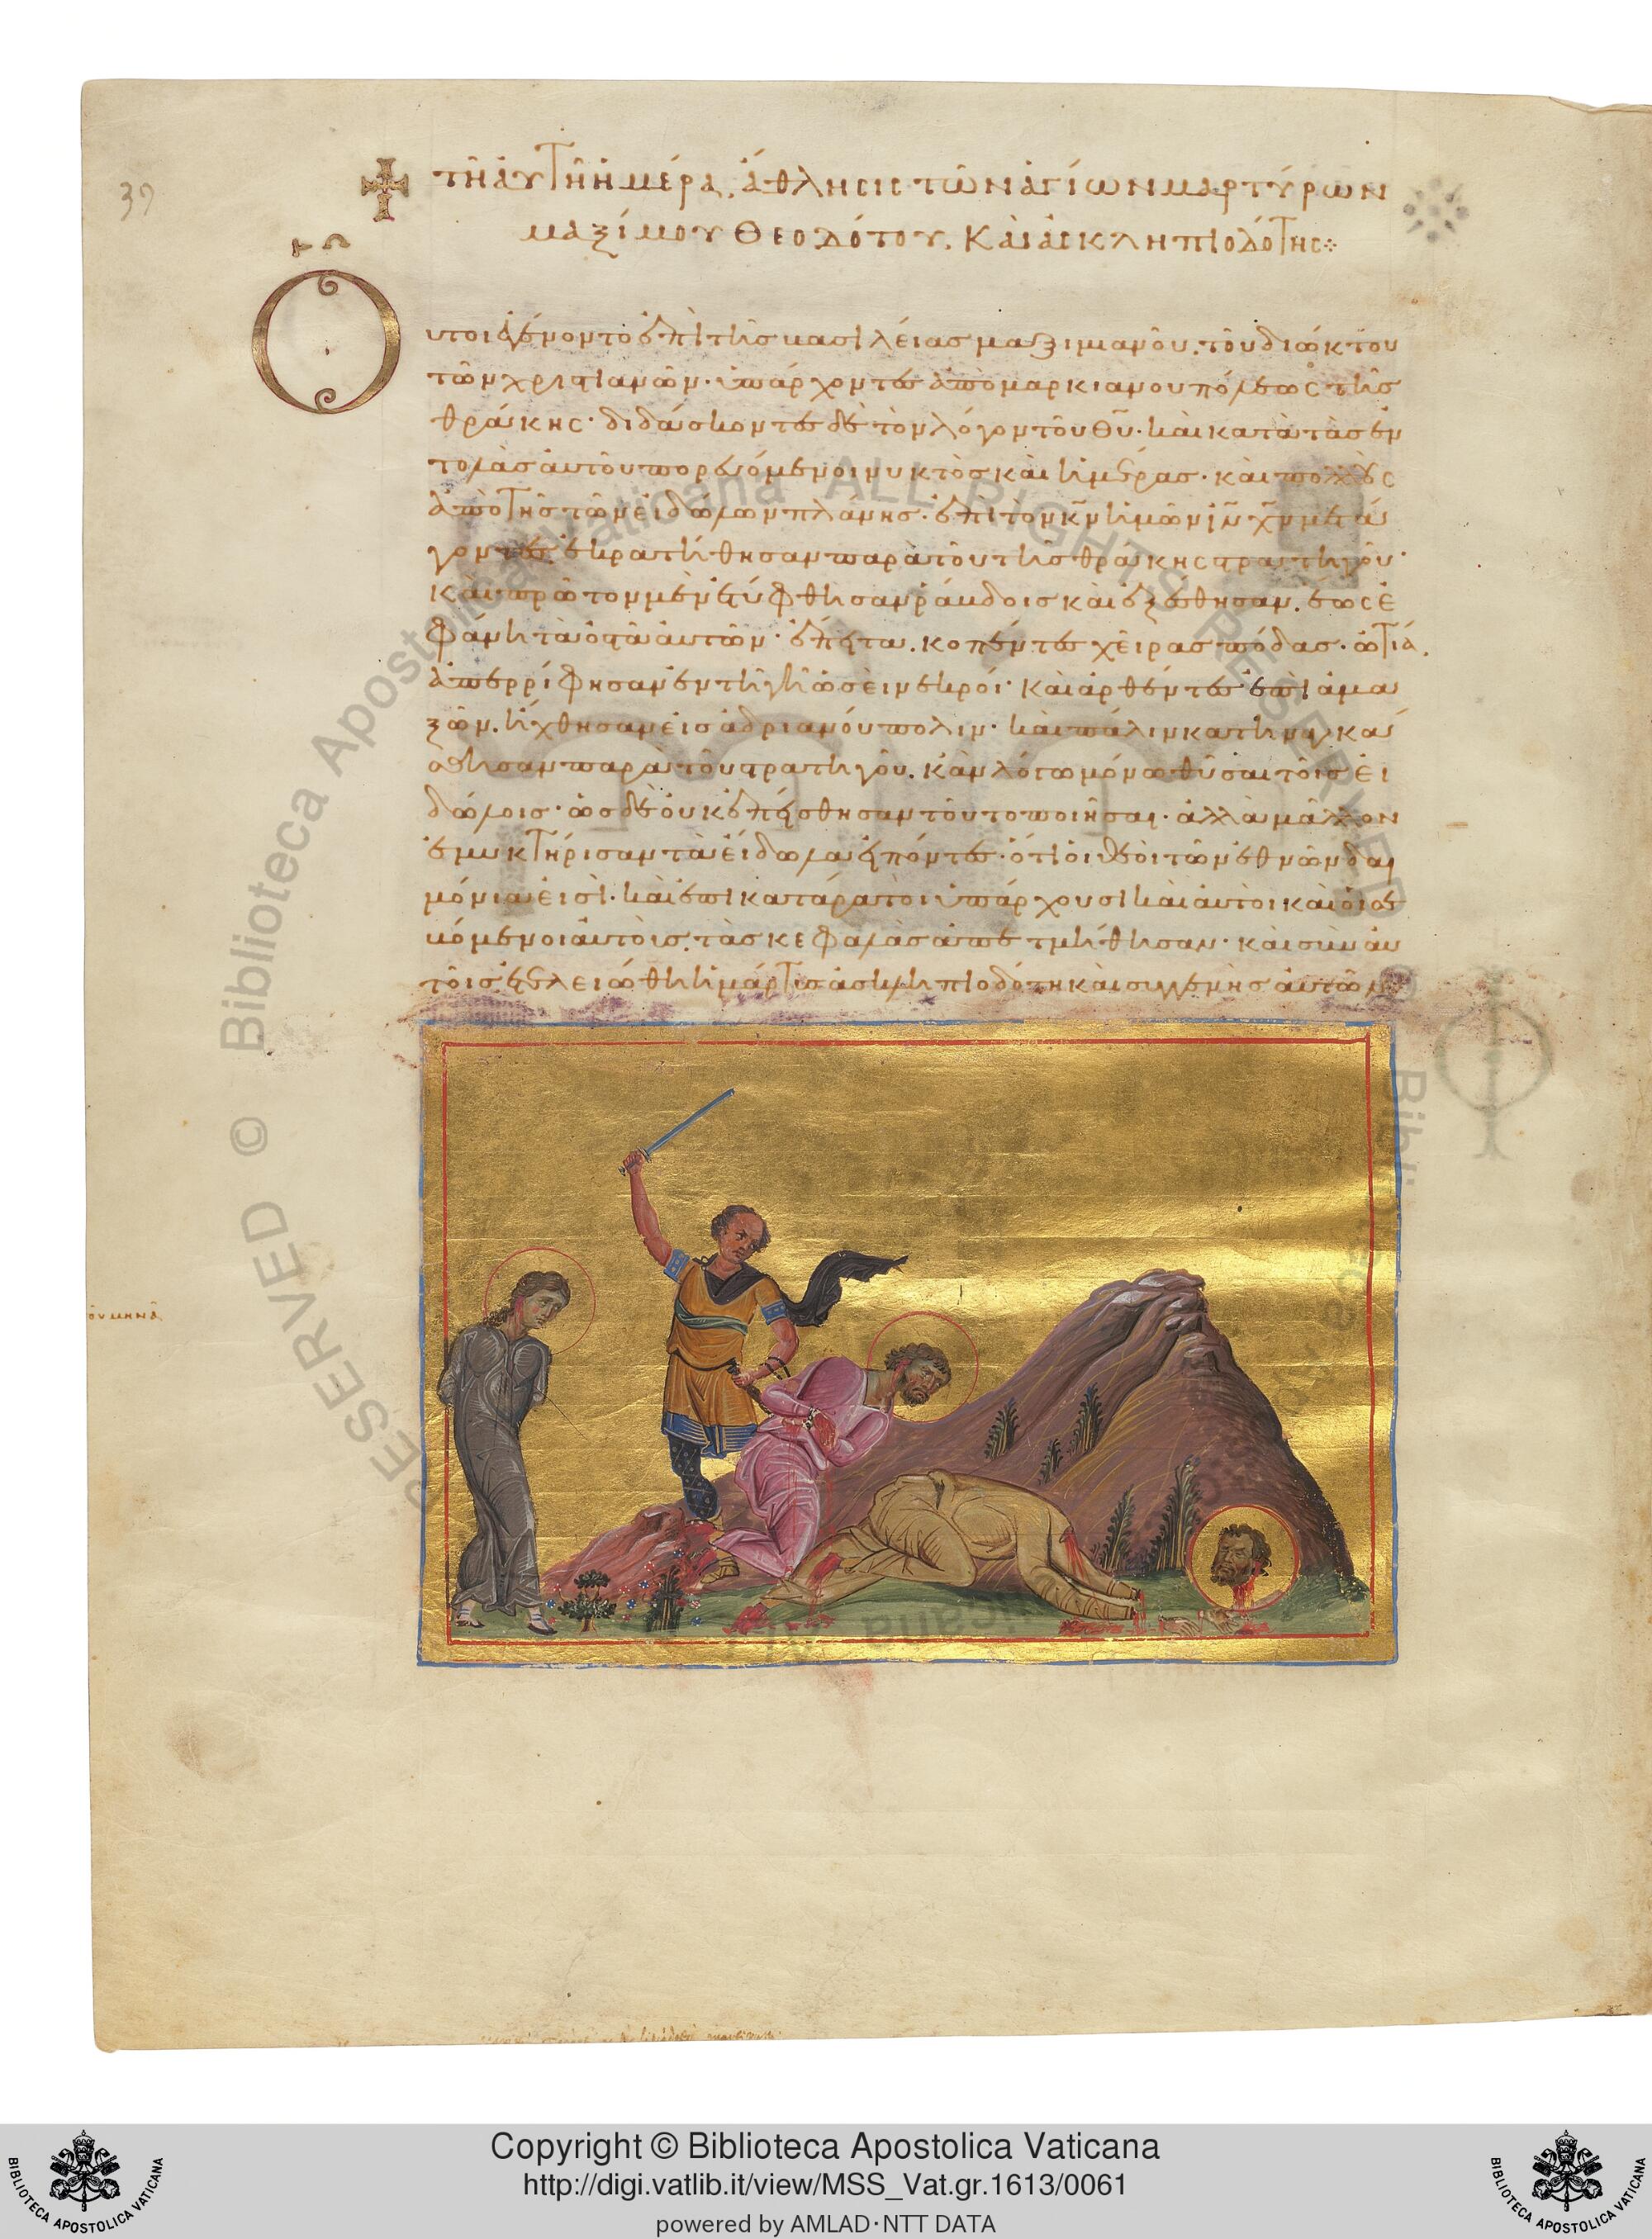 39
τῆ αὐτῆ ἡμέρα, ἄθλησις τῶν ἁγίων μαρτύρων
μαξίμου θεοδότου, καὶ ἀσκληπιοδότης
Οὗτοι ἐγένοντο ἐπὶ τῆς βασιλείας μαξιμιανοῦ, τοῦ διώκτου
τῶν χριστιανῶν· ὑπάρχοντες ἀπὸ μαρκιανουπόλεως τῆς
θράκης· διδάσκοντες δὲ τὸν λόγον τοῦ θυ· καὶ κατὰ τὰς ἐν
τολὰς αὐτοῦ πορευόμενοι νυκτὸς καὶ ἡμέρας· καὶ πολλοὺς
ἀπὸ τῆς τῶν εἰδώλων πλάνης· ἐπὶ τὸν κν ἡμῶν ιν χν μετά
γοντες ἐκρατήθησαν παρὰ τοῦ τῆς θράκης στρατηγοῦ·
καὶ πρῶτον μὲν ἐτύφθησαν ῥάβδοις καὶ ἐξέσθησαν, ἕως ἐ
φάνη τὰ ὀστᾶ αὐτῶν· ἔπειτα, κοπέντες χεῖρας πόδας· ὠτία,
ἀπερρίφησαν ἐν τῆ γῆ ὡσεὶ νεκροί· καὶ ἀρθέντες ἐπὶ ἁμα
ξῶν, ἤχθησαν εἰς ἀδριανούπολιν· καὶ πάλιν κατηναγκά
σθησαν παρὰ τοῦ στρατηγοῦ, κἂν λόγω μόνω θῦσαι τοῖς εἰ
δώλοις· ὡς δὲ οὐκ ἐπείσθησαν τοῦτο ποιῆσαι· ἀλλὰ μᾶλλον
ἐμυκτήρισαν τὰ εἴδωλα εἰπόντες· ὅτι οἱ θεοὶ τῶν ἐθνῶν δαι
μόνια εἰσὶ· καὶ ἐπικατάρατοι ὑπάρχουσι καὶ αὐτοὶ καὶ οἱ σε
βόμενοι αὐτοῖς, τὰς κεφαλὰς ἀπετμήθησαν· καὶ σὺν αὐ
τοῖς ἐτελειώθη ἡ μάρτις ἀσκληπιοδότη καὶ συγγενὴς αὐτῶν
Copyright © Biblioteca Apostolica Vaticana
http://digi.vatlib.it/view/MSS_Vat.gr.1613/0061
powered by AMLAD·NTT DATA
BIBLIOTECA APOSTOLICA VATICANA
BIBLIOTECA APOSTOLICA VATICANA